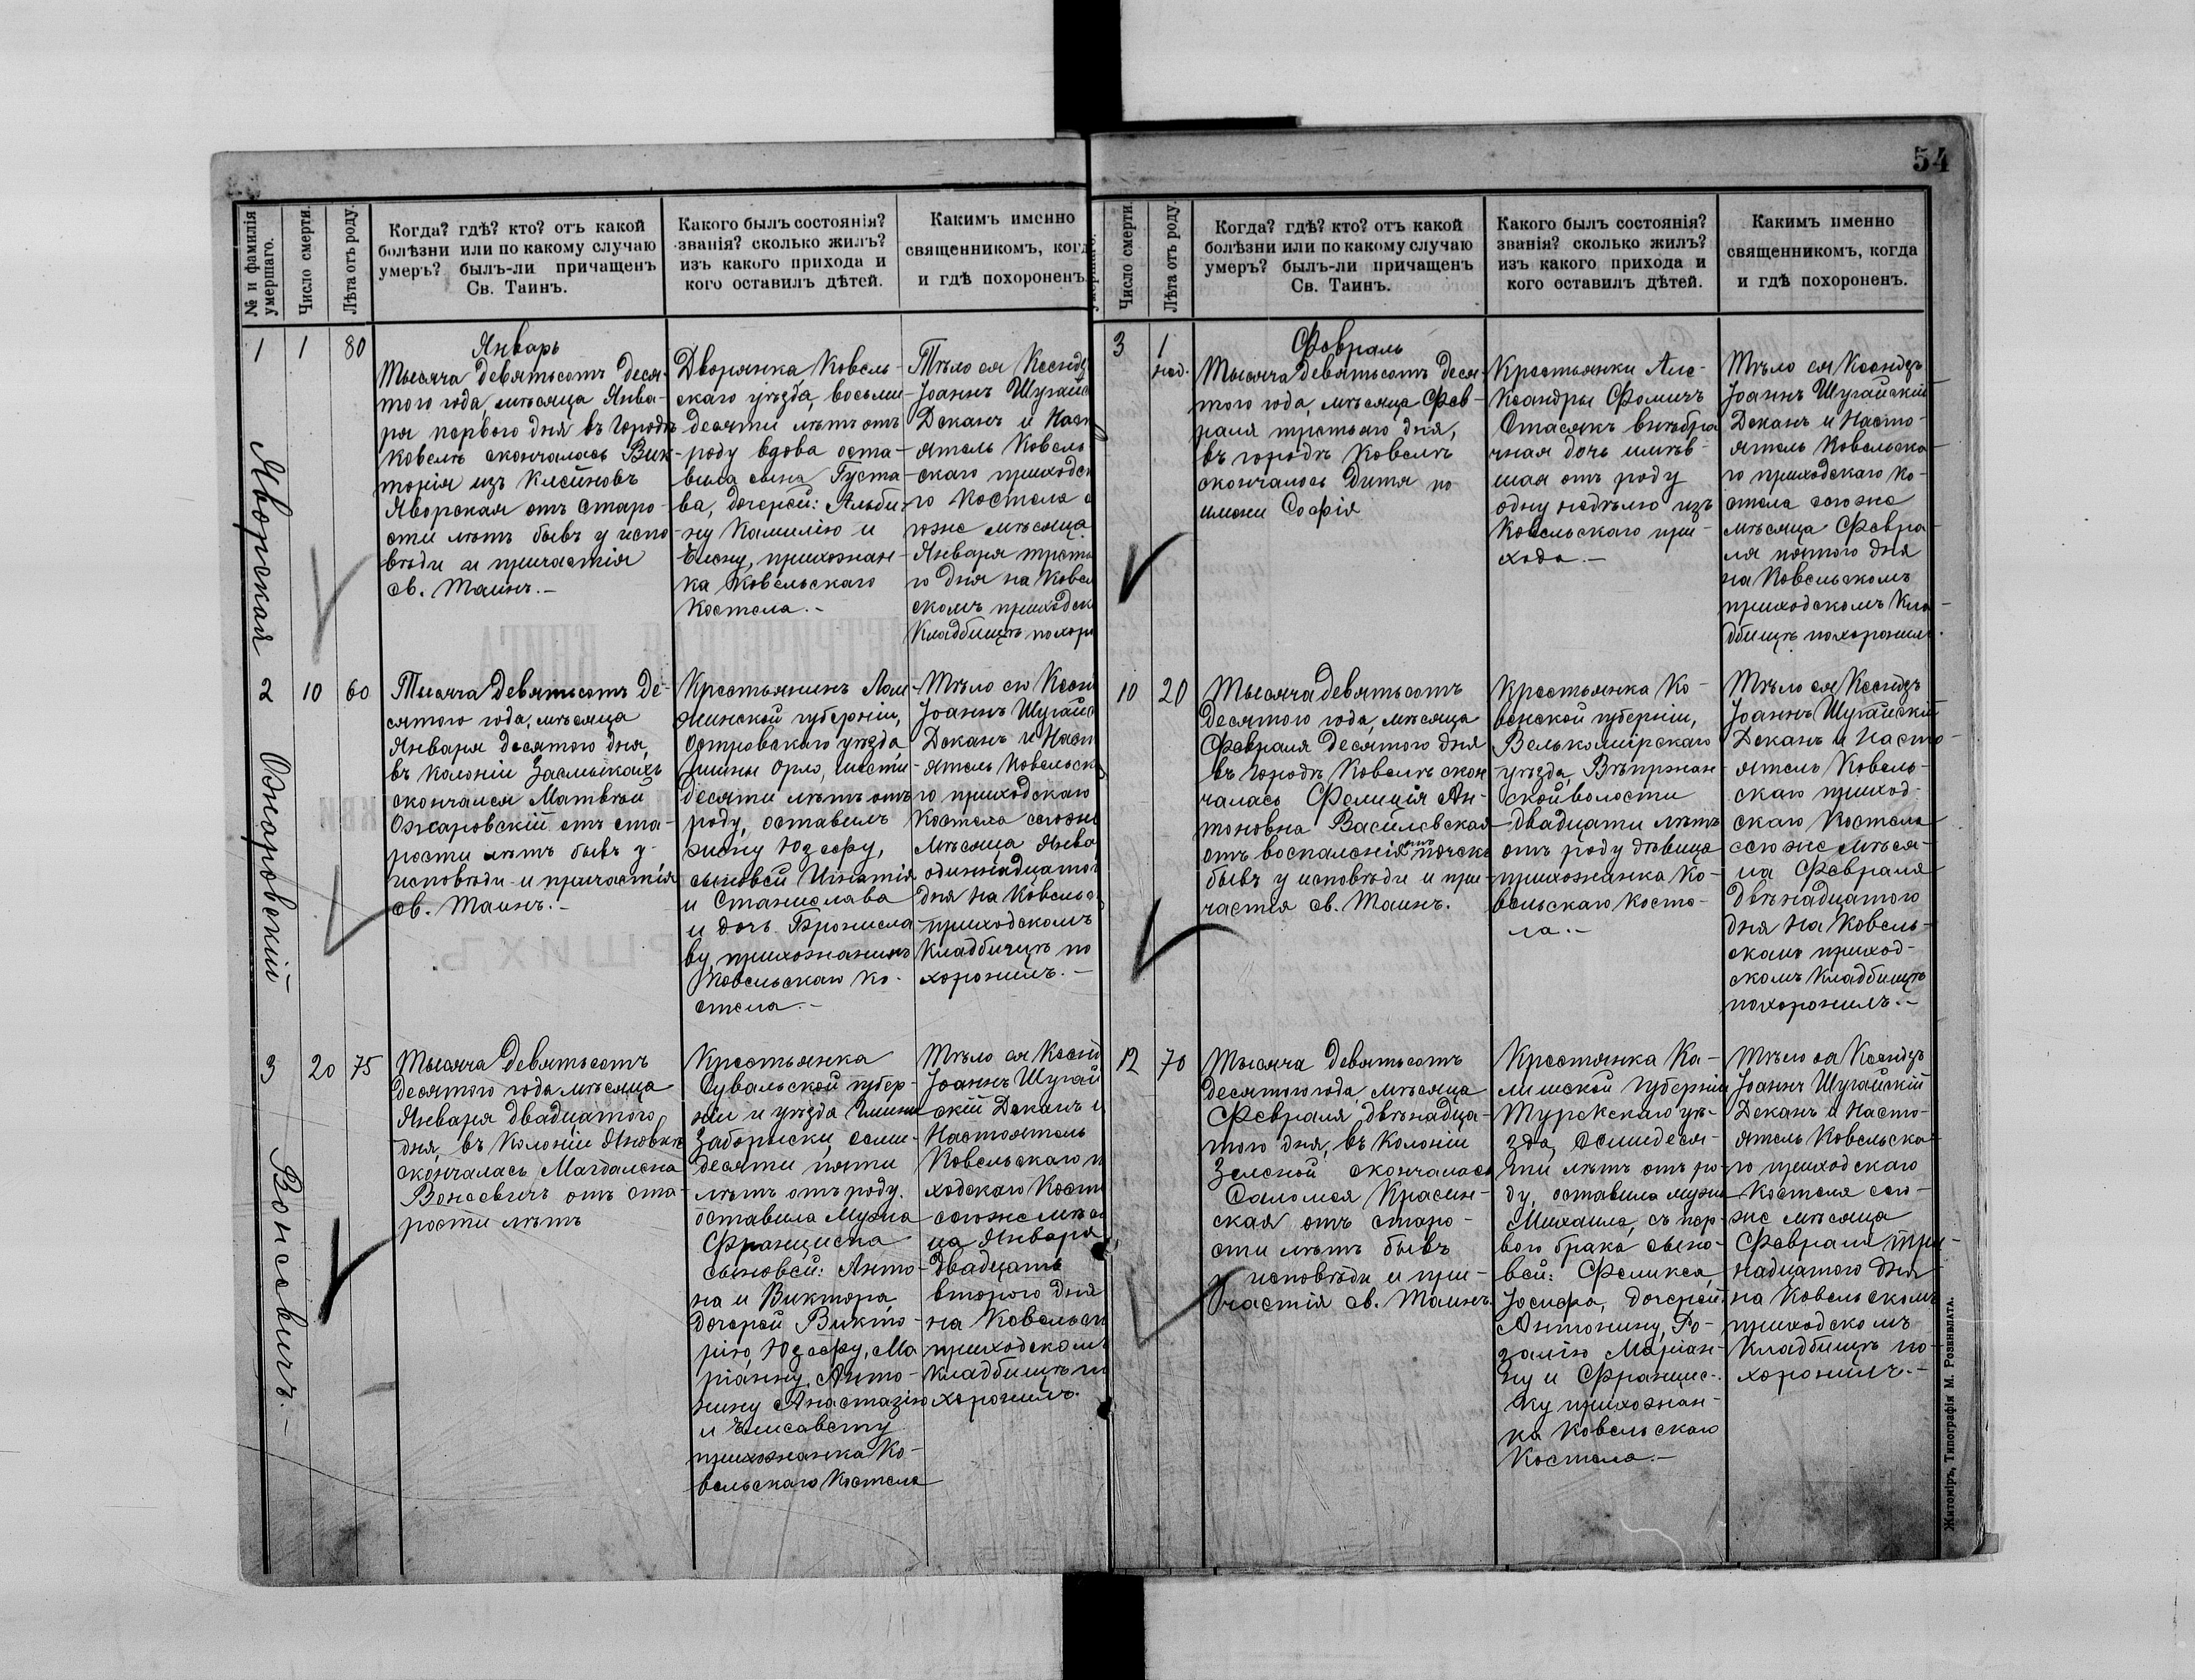 54
№ и фамилія умершаго.
Число смерти.
Лѣта отъ роду.
Когда? гдѣ? кто? отъ какой
болѣзни или по какому случаю
умеръ? былъ-ли причащенъ
Св. Таинъ.
Какого былъ состоянія?
званія? сколько жилъ?
изъ какого прихода и
кого оставилъ дѣтей.
Какимъ именно
священникомъ, когд
и гдѣ похороненъ.
1
Яворская
1
80
Январь
Тысяча девятьсотъ деся-
того года, мѣсяца Янва-
ря перваго дня въ городѣ
Ковелѣ скончалась Вик-
торія изъ
Яворская отъ старо-
сти лѣтъ бывъ у испо
вѣди и причастія
св. Таинъ.-
Дворянка Ковель-
скаго уѣзда, восьми-
десяти лѣтъ отъ
роду вдова оста-
вила сына Густа
ва, дочерей: Альби-
ну Камилію и
Елену, прихожан-
ка Ковельскаго
Костела.-
Тѣло ея Ксендз
Іоаннъ Шугайс
Деканъ и Наст
ятель Ковель
скаго приходск
го Костела с
гоже мѣсяца
Января треть
го дня на Ковел
скомъ приходск
Кладбищѣ похор
2
Ожаровскій
10
60
Тысяча девятьсотъ де-
сятого года, мѣсяца
Января десятого дня,
въ колоніи Засмыкахъ
скончался Матвѣй
Ожаровскій отъ ста-
рости лѣтъ бывъ у-
исповѣди и причастія
св. Таинъ.-
Крестьянинъ Лом-
жинской губерніи,
Островскаго уѣзда,
гмины Орло, шести-
десяти лѣтъ отъ
роду, оставилъ
жену Юзефу,
сыновей Игнатія
и Станислава
и дочь Бронисла
ву, прихожанинъ
Ковельскаго Ко-
стела.-
Тѣло его Ксен
Іоаннъ Шугайс
Деканъ и Наст
ятель Ковельск
го приходскаго
Костела сегоже
Мѣсяца Янва
одиннадцатог
дня на Ковельс
приходскомъ
Кладбищѣ по
хоронилъ.-
3
Вонсовичъ.-
20
75
Тысяча девятьсотъ
десятого года мѣсяца
Января двадцатого
дня, въ Колоніи Яновкѣ
скончалась Магдалена
Вонсовичъ отъ ста-
рости лѣтъ
Крестьянка
Сувальской губер-
ніи и уѣзда гмины
Заборышки, семи-
десяти пяти
лѣтъ отъ роду.
оставила Мужа
Франциска
сыновей: Анто-
на и Виктора,
дочерей Викто-
рію, Юзефу, Ма
ріанну, Анто-
нину Анастазію
и Елисавету
прихожанка Ко-
вельскаго Костела
Тѣло ея Ксенд
Іоаннъ Шугай
скій Деканъ и
Настоятель
Ковельскаго п
ходскаго Косте
сегоже мѣся
ца Января
двадцать
второго дня
на Ковельск
приходскомъ
Кладбищѣ по
хоронилъ.
умершаго.
Число смерти.
Лѣта отъ роду.
Когда? гдѣ? кто? отъ какой
болѣзни или по какому случаю
умеръ? былъ-ли причащенъ
Св. Таинъ.
Какого былъ состоянія?
званія? сколько жилъ?
изъ какого прихода и
кого оставилъ дѣтей.
Какимъ именно
священникомъ, когда
и гдѣ похороненъ.
3
1
нед.
Февраль
Тысяча девятьсотъ деся-
того года, мѣсяца Фев-
раля третьяго дня,
въ городѣ Ковелѣ
скончалось дитя по
имени Софія
Крестьянки Але-
ксандры Фомичъ
Стасякъ внѣбра
чная дочь имѣв-
шая отъ роду
одну недѣлю изъ
Ковельскаго при-
хода.-
Тѣло ея Ксендзъ
Іоаннъ Шугайскій
Деканъ и Насто-
ятель Ковельска-
го приходскаго Ко-
стела сегоже
мѣсяца Февра-
ля пятого дня
на Ковельскомъ
приходскомъ Кла-
дбищѣ похоронилъ.
10
20
Тысяча девятьсотъ
десятого года, мѣсяца
Февраля десятого дня
въ городѣ Ковелѣ скон
чалась Фелиція Ан-
тоновна Василевская
отъ воспаленія почекъ
бывъ у исповѣди и при-
частія св. Таинъ.
Крестьянка Ко-
венской губерніи,
Велькомірскаго
уѣзда,
ской волости
двадцати лѣтъ
отъ роду дѣвица
прихожанка Ко-
вельскаго Косте-
ла.-
Тѣло ея Ксендзъ
Іоаннъ Шугайскій
Деканъ и Насто-
ятель Ковель-
скаго приход-
скаго Костела
сегоже мѣся-
ца Февраля
двѣнадцатого
дня на Ковель-
скомъ приход-
скомъ Кладбищѣ
похоронилъ.-
12
70
Тысяча девятьсотъ
десятого года, мѣсяца
Февраля двѣнадца-
того дня, въ Колоніи
Зеленой скончалась
Саломея Красин-
ская отъ старо-
сти лѣтъ бывъ
у исповѣди и при-
частія св. Таинъ.
Крестянка Ка-
лишской Губерніи
Турекскаго уѣ-
зда, семидеся-
ти лѣтъ отъ ро-
ду, оставила мужа
Михаила, съ пер-
вого брака сыно-
вей: Феликса,
Іосифа, дочерей
Антонину, Ро-
залію Маріан-
ну и Францис-
ку прихожан-
ка Ковельскаго
Костела.-
Тѣло ея Ксендзъ
Іоаннъ Шугайскій
Деканъ и Насто-
ятель Ковельска-
го приходскаго
Костела сего-
же мѣсяца
Февраля три-
надцатого дня
на Ковельскомъ
приходскомъ
Кладбищѣ по-
хоронилъ.-
Житоміръ, Типографія М. Розенблата.